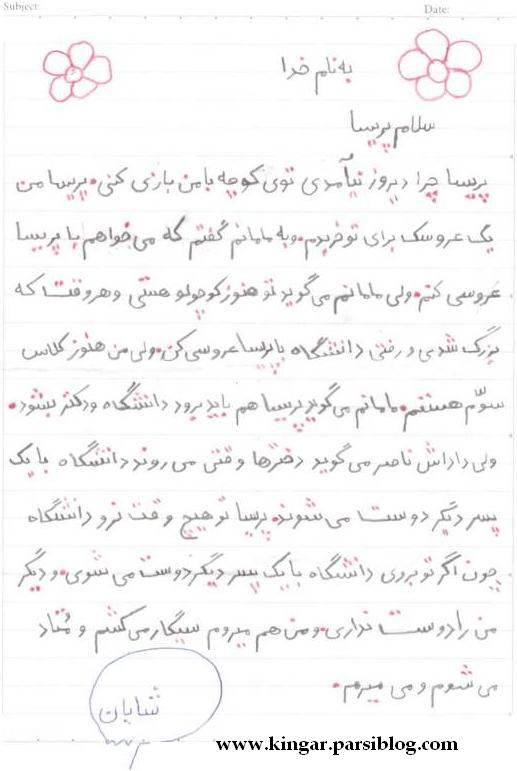 Subject:
Date:
به نام خدا
سلام پریسا
پریسا چرا دیروز نیآمدی توی کوچه با من بازی کنی. پریسا من
یک عروسک برای تو خریدم. و به مامانم گفتم که می خواهم با پریسا
عروسی کنم. ولی مامانم می گوید تو هنوز کوچولو هستی و هر وقت که
بزرگ شدی و رفتی دانشگاه با پریسا عروسی کن. ولی من هنوز کلاس
سوّم هستم. مامانم می گوید پریسا هم باید برود دانشگاه و دکتر بشود.
ولی داداش ناصر می گوید دخترها وقتی می روند دانشگاه با یک
پسر دیگر دوست می شوند. پریسا تو هیچ وقت نرو دانشگاه
چون اگر تو بروی دانشگاه با یک پسر دیگر دوست می شوی. و دیگر
من را دوست نداری. و من هم میروم سیگار می کشم و مُتاد
می شوم و می میرم.
شایان
www.kingar.parsiblog.com